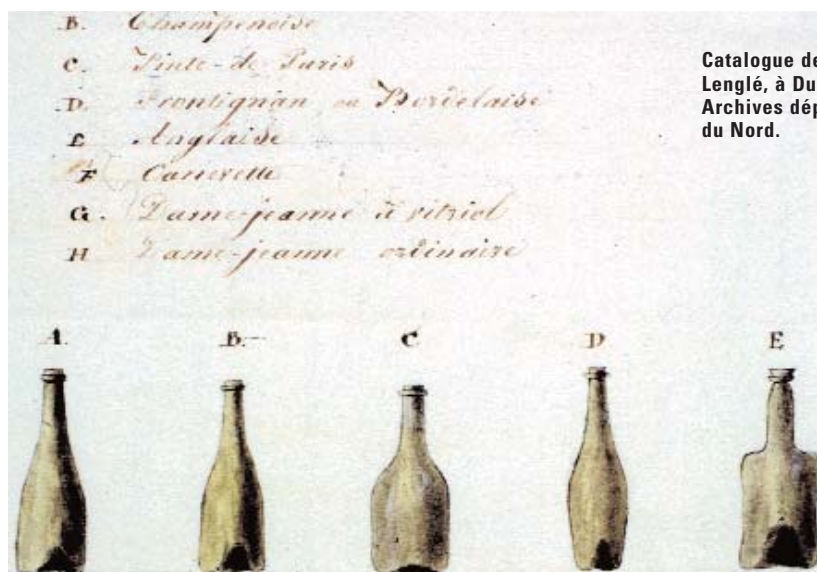 B. Champenoise
C. Pinte-de Paris
D. Frontignan ou Bordelaise
E Anglaise
F Canevette
G. Dame-jeanne à vitriol
H Dame-jeanne ordinaire
Catalogue de
Lenglé, à Du
Archives dép
du Nord.
A. B. C D E